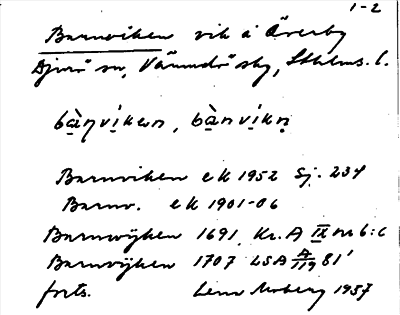 1-2
Barnviken vik å Överby
Djurö sn, Värmdö skg, Sthlms. l.
bànvikən, bànvikn̥
Barnviken ek 1952 Sj. 234
Barnv. ek 1901-06
Barnwÿken 1691 Kr. A IX nr 6:c
Barnvÿken 1707 LSA A/119 81'
forts. Lena Moberg 1957